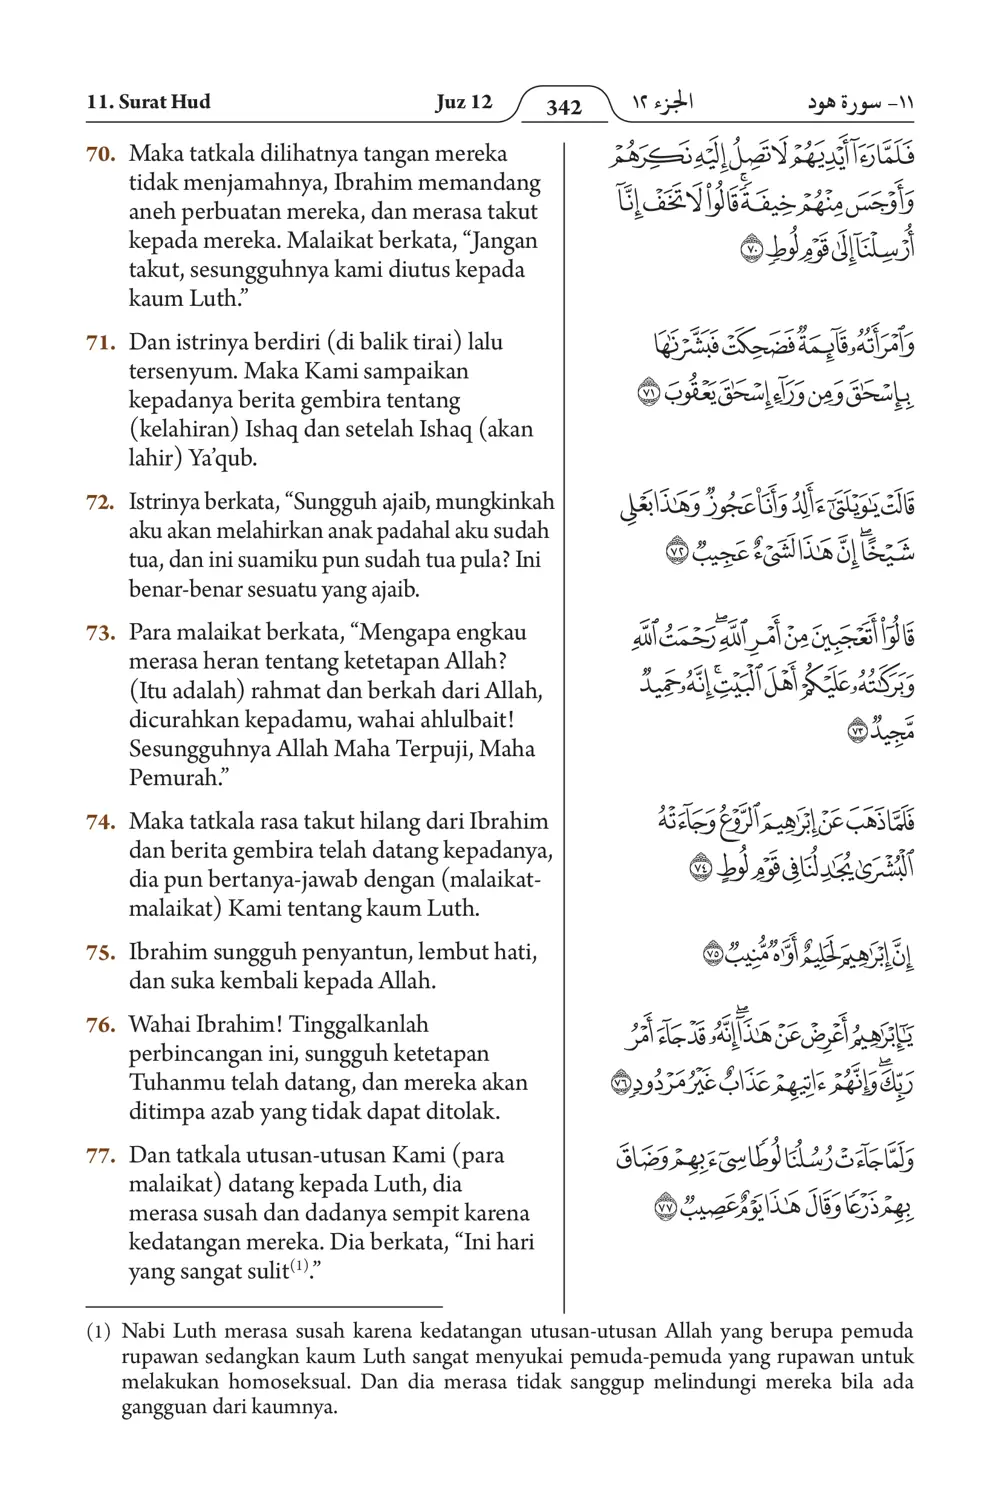 11. Surat Hud
Juz 12
342
الجزء ١٢
١١- سورة هود
70. Maka tatkala dilihatnya tangan mereka
tidak menjamahnya, Ibrahim memandang
aneh perbuatan mereka, dan merasa takut
kepada mereka. Malaikat berkata, “Jangan
takut, sesungguhnya kami diutus kepada
kaum Luth.”
فَلَمَّا رَءَآ أَيْدِيَهُمْ لَا تَصِلُ إِلَيْهِ نَكِرَهُمْ
وَأَوْجَسَ مِنْهُمْ خِيفَةًۚ قَالُوا۟ لَا تَخَفْ إِنَّآ
أُرْسِلْنَآ إِلَىٰ قَوْمِ لُوطٍ ٧٠
71. Dan istrinya berdiri (di balik tirai) lalu
tersenyum. Maka Kami sampaikan
kepadanya berita gembira tentang
(kelahiran) Ishaq dan setelah Ishaq (akan
lahir) Ya’qub.
وَٱمْرَأَتُهُۥ قَآئِمَةٌ فَضَحِكَتْ فَبَشَّرْنَٰهَا
بِإِسْحَٰقَ وَمِن وَرَآءِ إِسْحَٰقَ يَعْقُوبَ ٧١
72. Istrinya berkata, “Sungguh ajaib, mungkinkah
aku akan melahirkan anak padahal aku sudah
tua, dan ini suamiku pun sudah tua pula? Ini
benar-benar sesuatu yang ajaib.
قَالَتْ يَٰوَيْلَتَىٰٓ ءَأَلِدُ وَأَنَا۠ عَجُوزٌ وَهَٰذَا بَعْلِى
شَيْخًاۖ إِنَّ هَٰذَا لَشَىْءٌ عَجِيبٌ ٧٢
73. Para malaikat berkata, “Mengapa engkau
merasa heran tentang ketetapan Allah?
(Itu adalah) rahmat dan berkah dari Allah,
dicurahkan kepadamu, wahai ahlulbait!
Sesungguhnya Allah Maha Terpuji, Maha
Pemurah.”
قَالُوٓا۟ أَتَعْجَبِينَ مِنْ أَمْرِ ٱللَّهِۖ رَحْمَتُ ٱللَّهِ
وَبَرَكَٰتُهُۥ عَلَيْكُمْ أَهْلَ ٱلْبَيْتِۚ إِنَّهُۥ حَمِيدٌ
مَّجِيدٌ ٧٣
74. Maka tatkala rasa takut hilang dari Ibrahim
dan berita gembira telah datang kepadanya,
dia pun bertanya-jawab dengan (malaikat-
malaikat) Kami tentang kaum Luth.
فَلَمَّا ذَهَبَ عَنْ إِبْرَٰهِيمَ ٱلرَّوْعُ وَجَآءَتْهُ
ٱلْبُشْرَىٰ يُجَٰدِلُنَا فِى قَوْمِ لُوطٍ ٧٤
75. Ibrahim sungguh penyantun, lembut hati,
dan suka kembali kepada Allah.
إِنَّ إِبْرَٰهِيمَ لَحَلِيمٌ أَوَّٰهٌ مُّنِيبٌ ٧٥
76. Wahai Ibrahim! Tinggalkanlah
perbincangan ini, sungguh ketetapan
Tuhanmu telah datang, dan mereka akan
ditimpa azab yang tidak dapat ditolak.
يَٰٓإِبْرَٰهِيمُ أَعْرِضْ عَنْ هَٰذَآۖ إِنَّهُۥ قَدْ جَآءَ أَمْرُ
رَبِّكَۖ وَإِنَّهُمْ ءَاتِيهِمْ عَذَابٌ غَيْرُ مَرْدُودٍ ٧٦
77. Dan tatkala utusan-utusan Kami (para
malaikat) datang kepada Luth, dia
merasa susah dan dadanya sempit karena
kedatangan mereka. Dia berkata, “Ini hari
yang sangat sulit(1).”
وَلَمَّا جَآءَتْ رُسُلُنَا لُوطًا سِىٓءَ بِهِمْ وَضَاقَ
بِهِمْ ذَرْعًا وَقَالَ هَٰذَا يَوْمٌ عَصِيبٌ ٧٧
(1) Nabi Luth merasa susah karena kedatangan utusan-utusan Allah yang berupa pemuda
rupawan sedangkan kaum Luth sangat menyukai pemuda-pemuda yang rupawan untuk
melakukan homoseksual. Dan dia merasa tidak sanggup melindungi mereka bila ada
gangguan dari kaumnya.